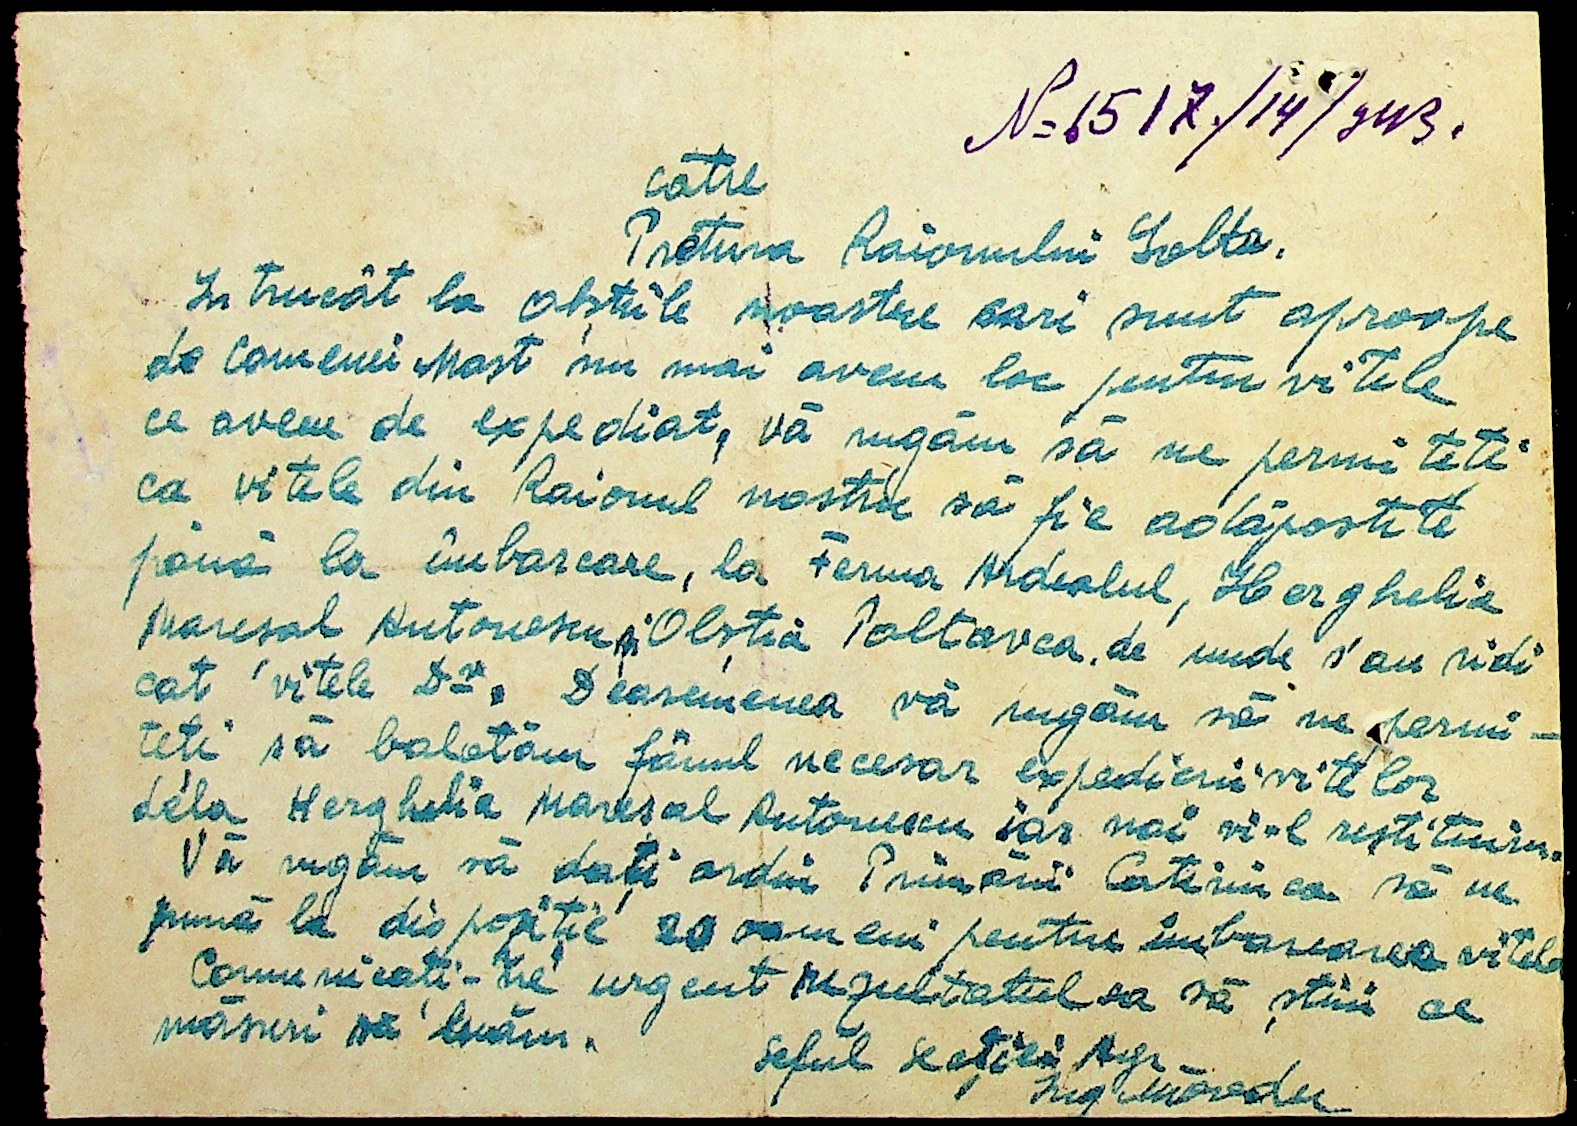 N=6517./14/943.
către
Pretura Raionului Golta.
Intrucât la Obștiile noastre cari sunt aproope
de Comenei Mast nu mai avem loc pentru vitele
ce avem de expediat, vă rugăm să ne permiteti
ca vitele din Raionul nostru să fie adăpostite
până la îmbarcare, la Ferma Ardealul, Herghelia
Mareșal Antonescu și Obștia Poltavca, de unde s'au ridi
cat vitele Dv. Deasemenea vă rugăm să ne permi-
teti să balotăm fânul necesar expedierii vitelor
dela Herghelia Mareșal Antonescu iar noi vi-l restituim.
Vă rugăm să dați ordin Primării Caterinca să ne
pună la dispoziție 20 oameni pentru îmbarcarea vitelo
Comunicați-ne urgent rezultatul ca să știm ce
măsuri să luăm.
Seful Secției Agr
Ing